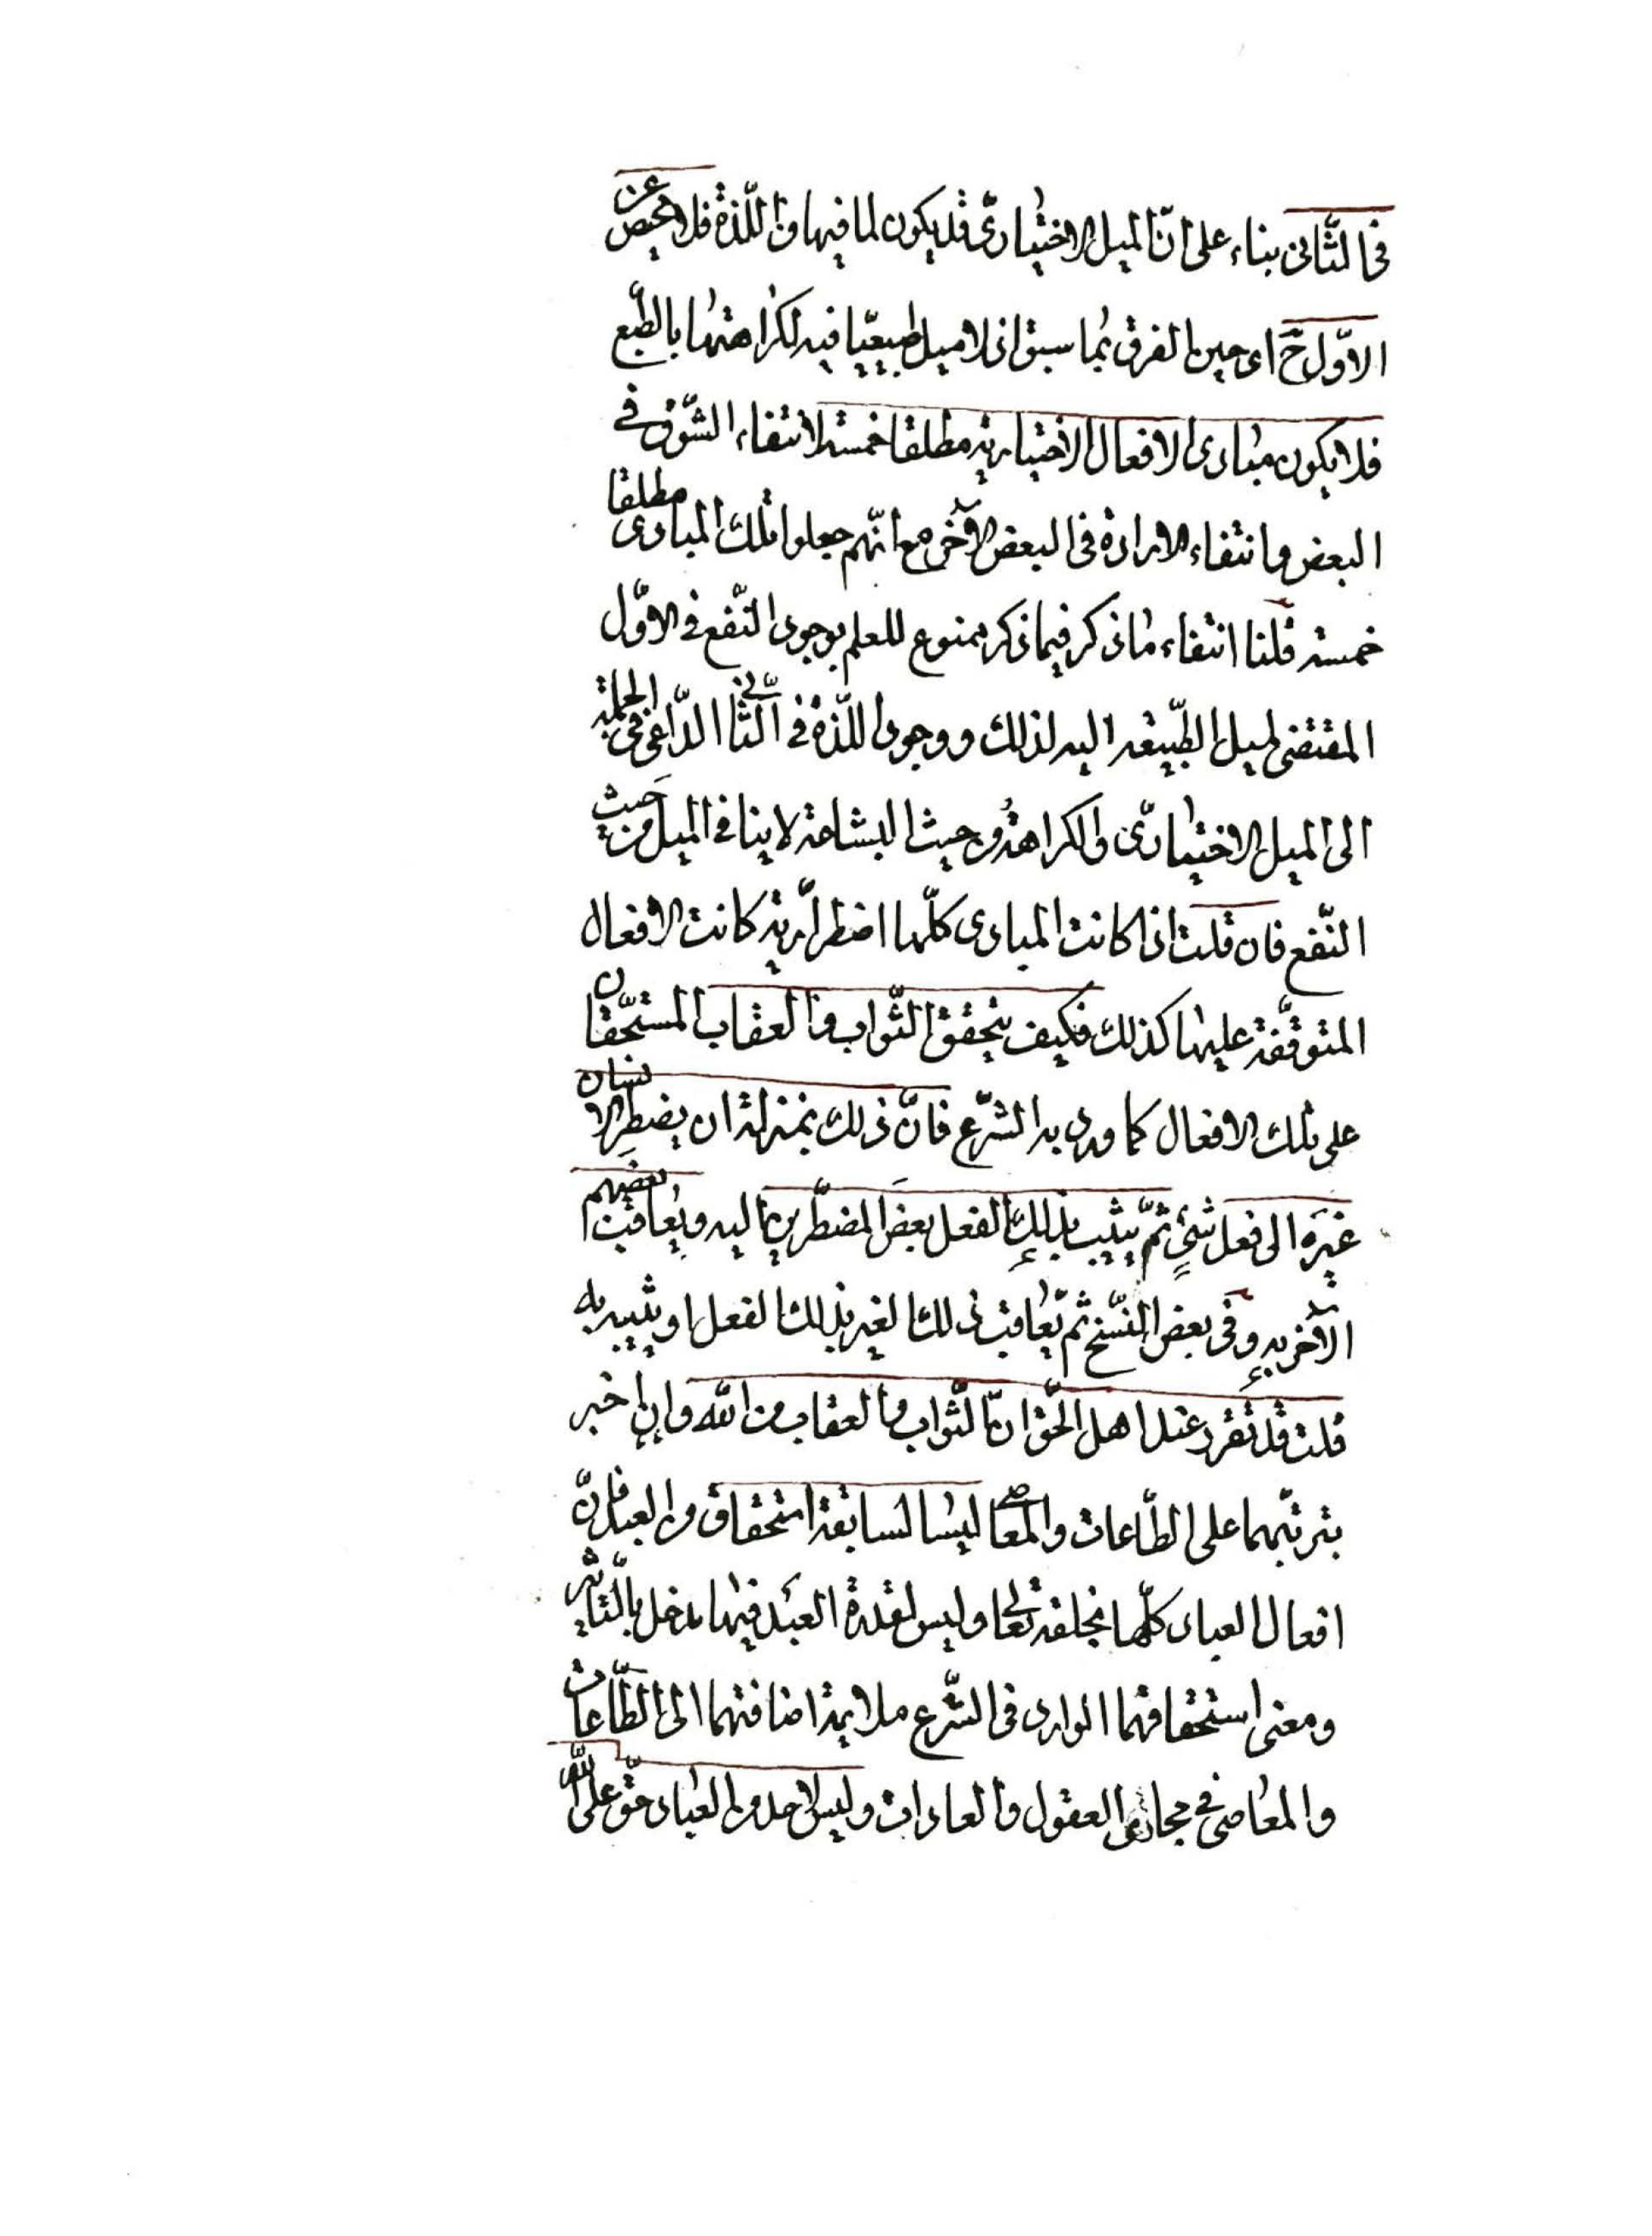 في الثّاني بناء على انّ الميل الاختياريّ قد يكون لما فيها من اللّذة فلا محيص عن
الاوّل حَ اى حين الفرق بما سبق اذ لا ميل طبيعيّا فيه لكراهتها بالطّبع
فلا يكون مبادى الافعال الاختيارية مطلقا خمسة لانتفاء الشّوق في
البعض وانتفاء الارادة في البعض الآخر مع انّهم جعلوا تلك المبادى مطلقا
خمسة قلنا انتفاء ما ذكر فيما ذكر ممنوع للعلم بوجود النّفع في الاوّل
المقتضى لميل الطّبيعة اليه لذلك ووجود اللّذة في الثّاني الدّاعي في الجملة
الى الميل الاختياريّ والكراهة من حيث البشاعة لا ينافي الميل من حيث
النّفع فان قلت اذا كانت المبادى كلّها اضطرارية كانت الافعال
المتوقّفة عليها كذلك فكيف يتحقق الثّواب والعقاب المستحقّان
على تلك الافعال كما ورد به الشّرع فانّ ذلك بمنزلة ان يضطر الانسان
غيرَه الى فعل شيءٍ ثمّ يثيب بذلك الفعل بعضَ المضطّرين اليه ويعاقب بعضهم
الآخر به وفي بعض النّسخ ثم يعاقب ذلك الغير بذلك الفعل او يثيبه به
قلت قد تقرر عند اهل الحقّ انّ الثّواب والعقاب من الله وان اخبر
بترتّبهما على الطّاعات والمعاصي ليسا لسابقة استحقاق من العبد فانّ
افعال العباد كلّها بخلقه تعالى وليس لقدرة العَبد فيها مدخل بالتّاثير
ومعنى استحقاقهما الوارد في الشّرع ملايمة اضافتهما الى الطّاعات
والمعاصى في مجارى العقول والعادات وليس لاحد من العباد حقّ على الله